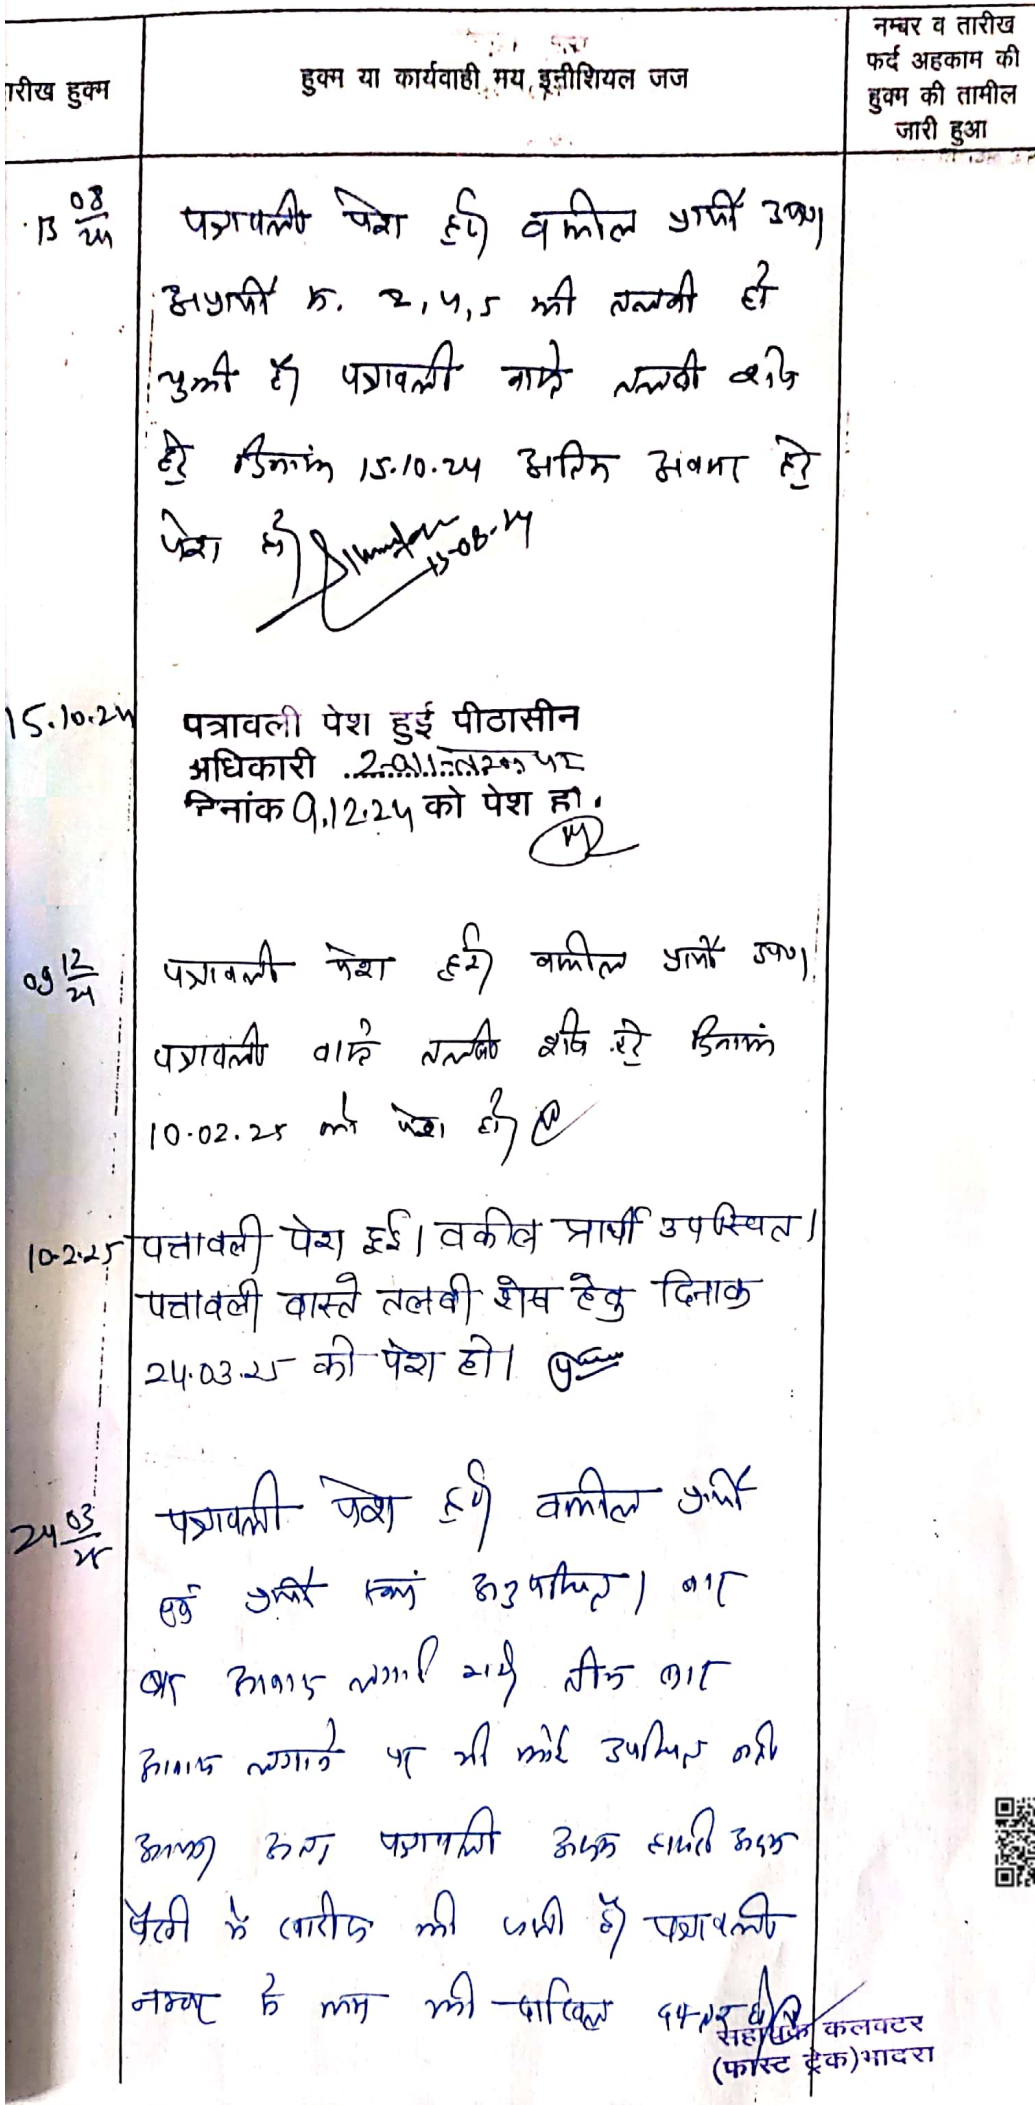 तारीख हुक्म
हुक्म या कार्यवाही मय इनीशियल जज
नम्बर व तारीख
फर्द अहकाम की
हुक्म की तामील
जारी हुआ
13 08/24
पत्रावली पेश हुई। वकील प्रार्थी उप०।
अप्रार्थी क्र. 2, 4, 5 की तलबी हो
चुकी है। पत्रावली वास्ते तलबी शेष
हेतु दिनांक 15.10.24 अंतिम अवसर हेतु
पेश हो।
13-08-24
15.10.24
पत्रावली पेश हुई पीठासीन
अधिकारी
दिनांक 9.12.24 को पेश हो.
09 12/24
पत्रावली पेश हुई। वकील प्रार्थी उप०।
पत्रावली वास्ते तलबी शेष हेतु दिनांक
10.02.25 को पेश हो।
10.2.25
पत्रावली पेश हुई। वकील प्रार्थी उपस्थित।
पत्रावली वास्ते तलबी शेष हेतु दिनाक
24.03.25 को पेश हो।
24 03/25
पत्रावली पेश हुई। वकील प्रार्थी
एवं प्रार्थी स्वयं अनुपस्थित। बार
बार आवाज लगाई गयी। तीन बार
आवाज लगाने पर भी कोई उपस्थित नहीं
आया। अतः पत्रावली अदम हाजरी अदम
पैरवी में खारीज की जाती है। पत्रावली
नम्बर से कम की दाखिल दफ्तर हो।
सहायक कलक्टर
(फास्ट ट्रेक) भादरा